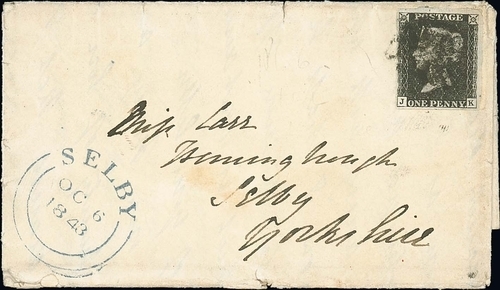 POSTAGE
J ONE PENNY K
Miss Carr
Hemingbrough
Selby
Yorkshire
SELBY
OC 6
1843